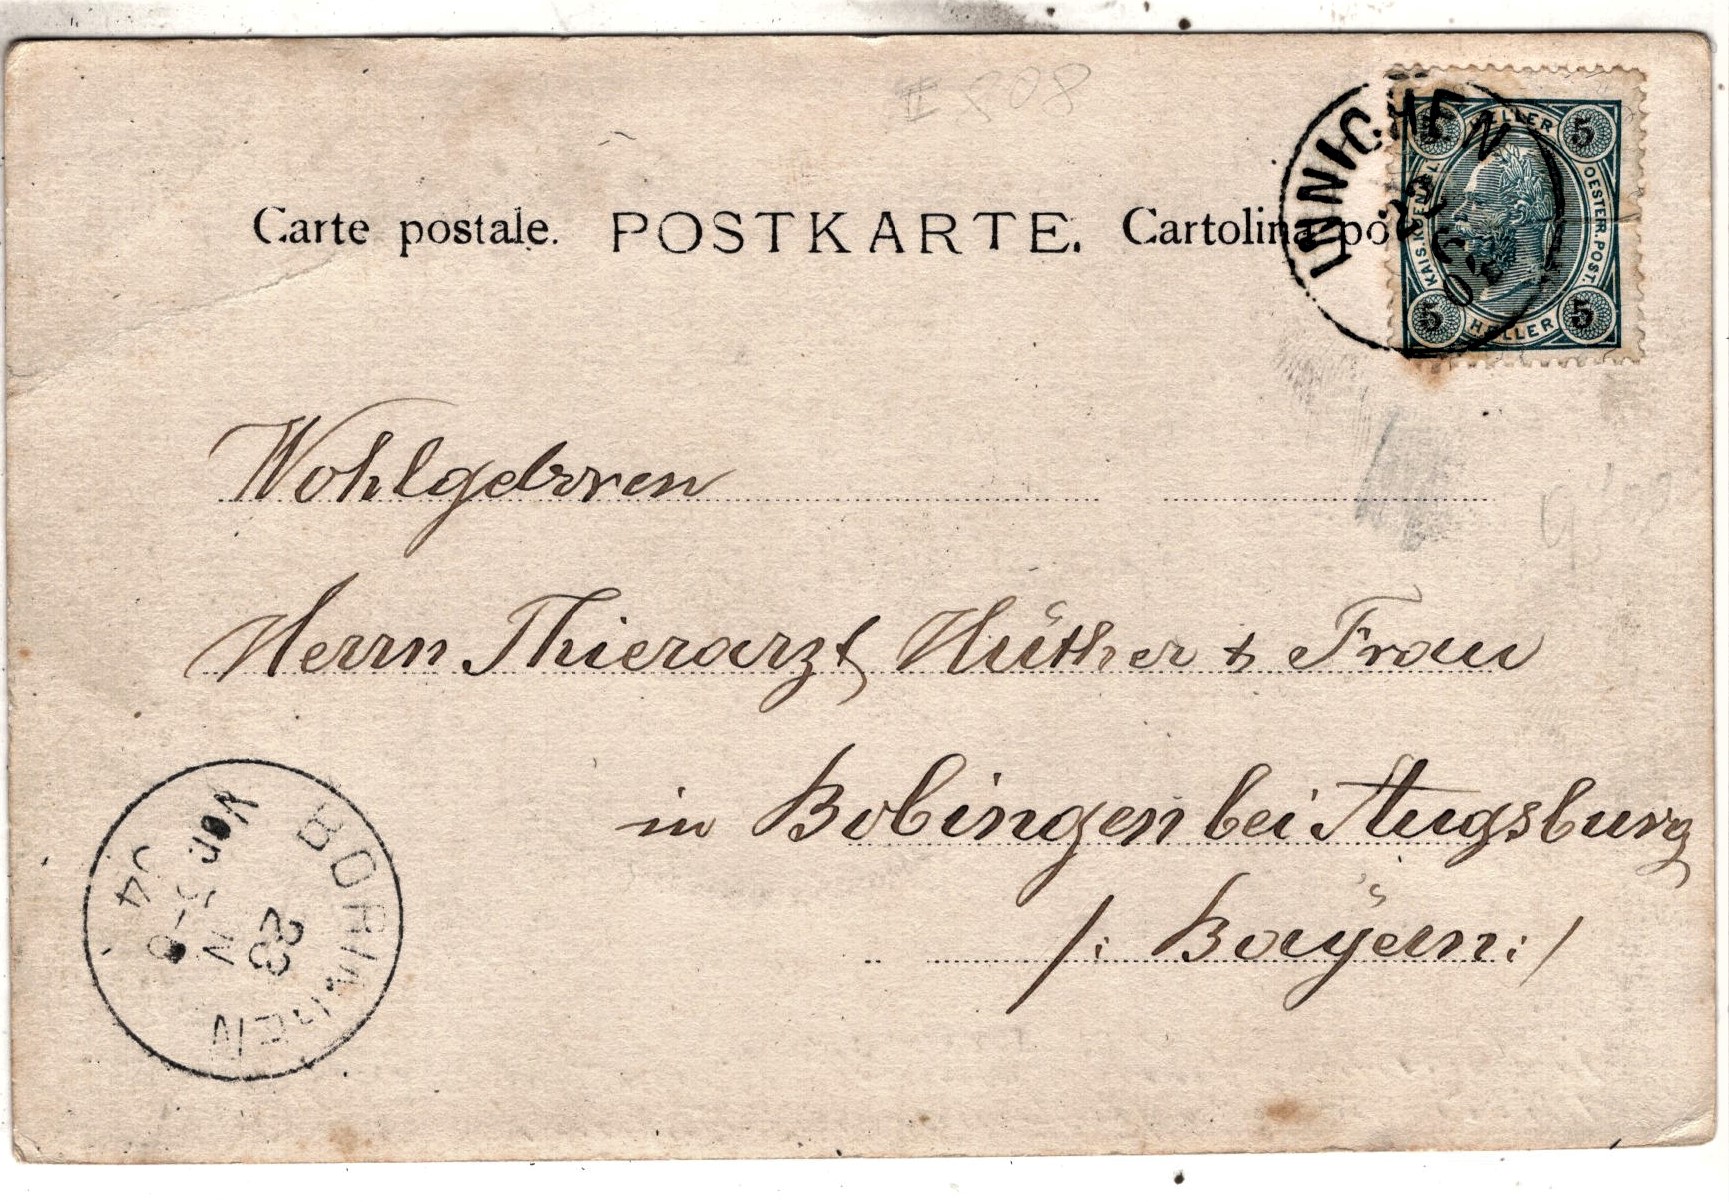 II 808
Carte postale. POSTKARTE. Cartolina po
INNICHEN
5 HELLER 5
KAIS. KOENIGL. OESTERR. POST.
5 HELLER 5
Wohlgeborren
Herrn Thierarzt Hüther & Frau
in Bobingen bei Augsburg
/: Bayern :/
BOBINGEN
23
Vor.
04